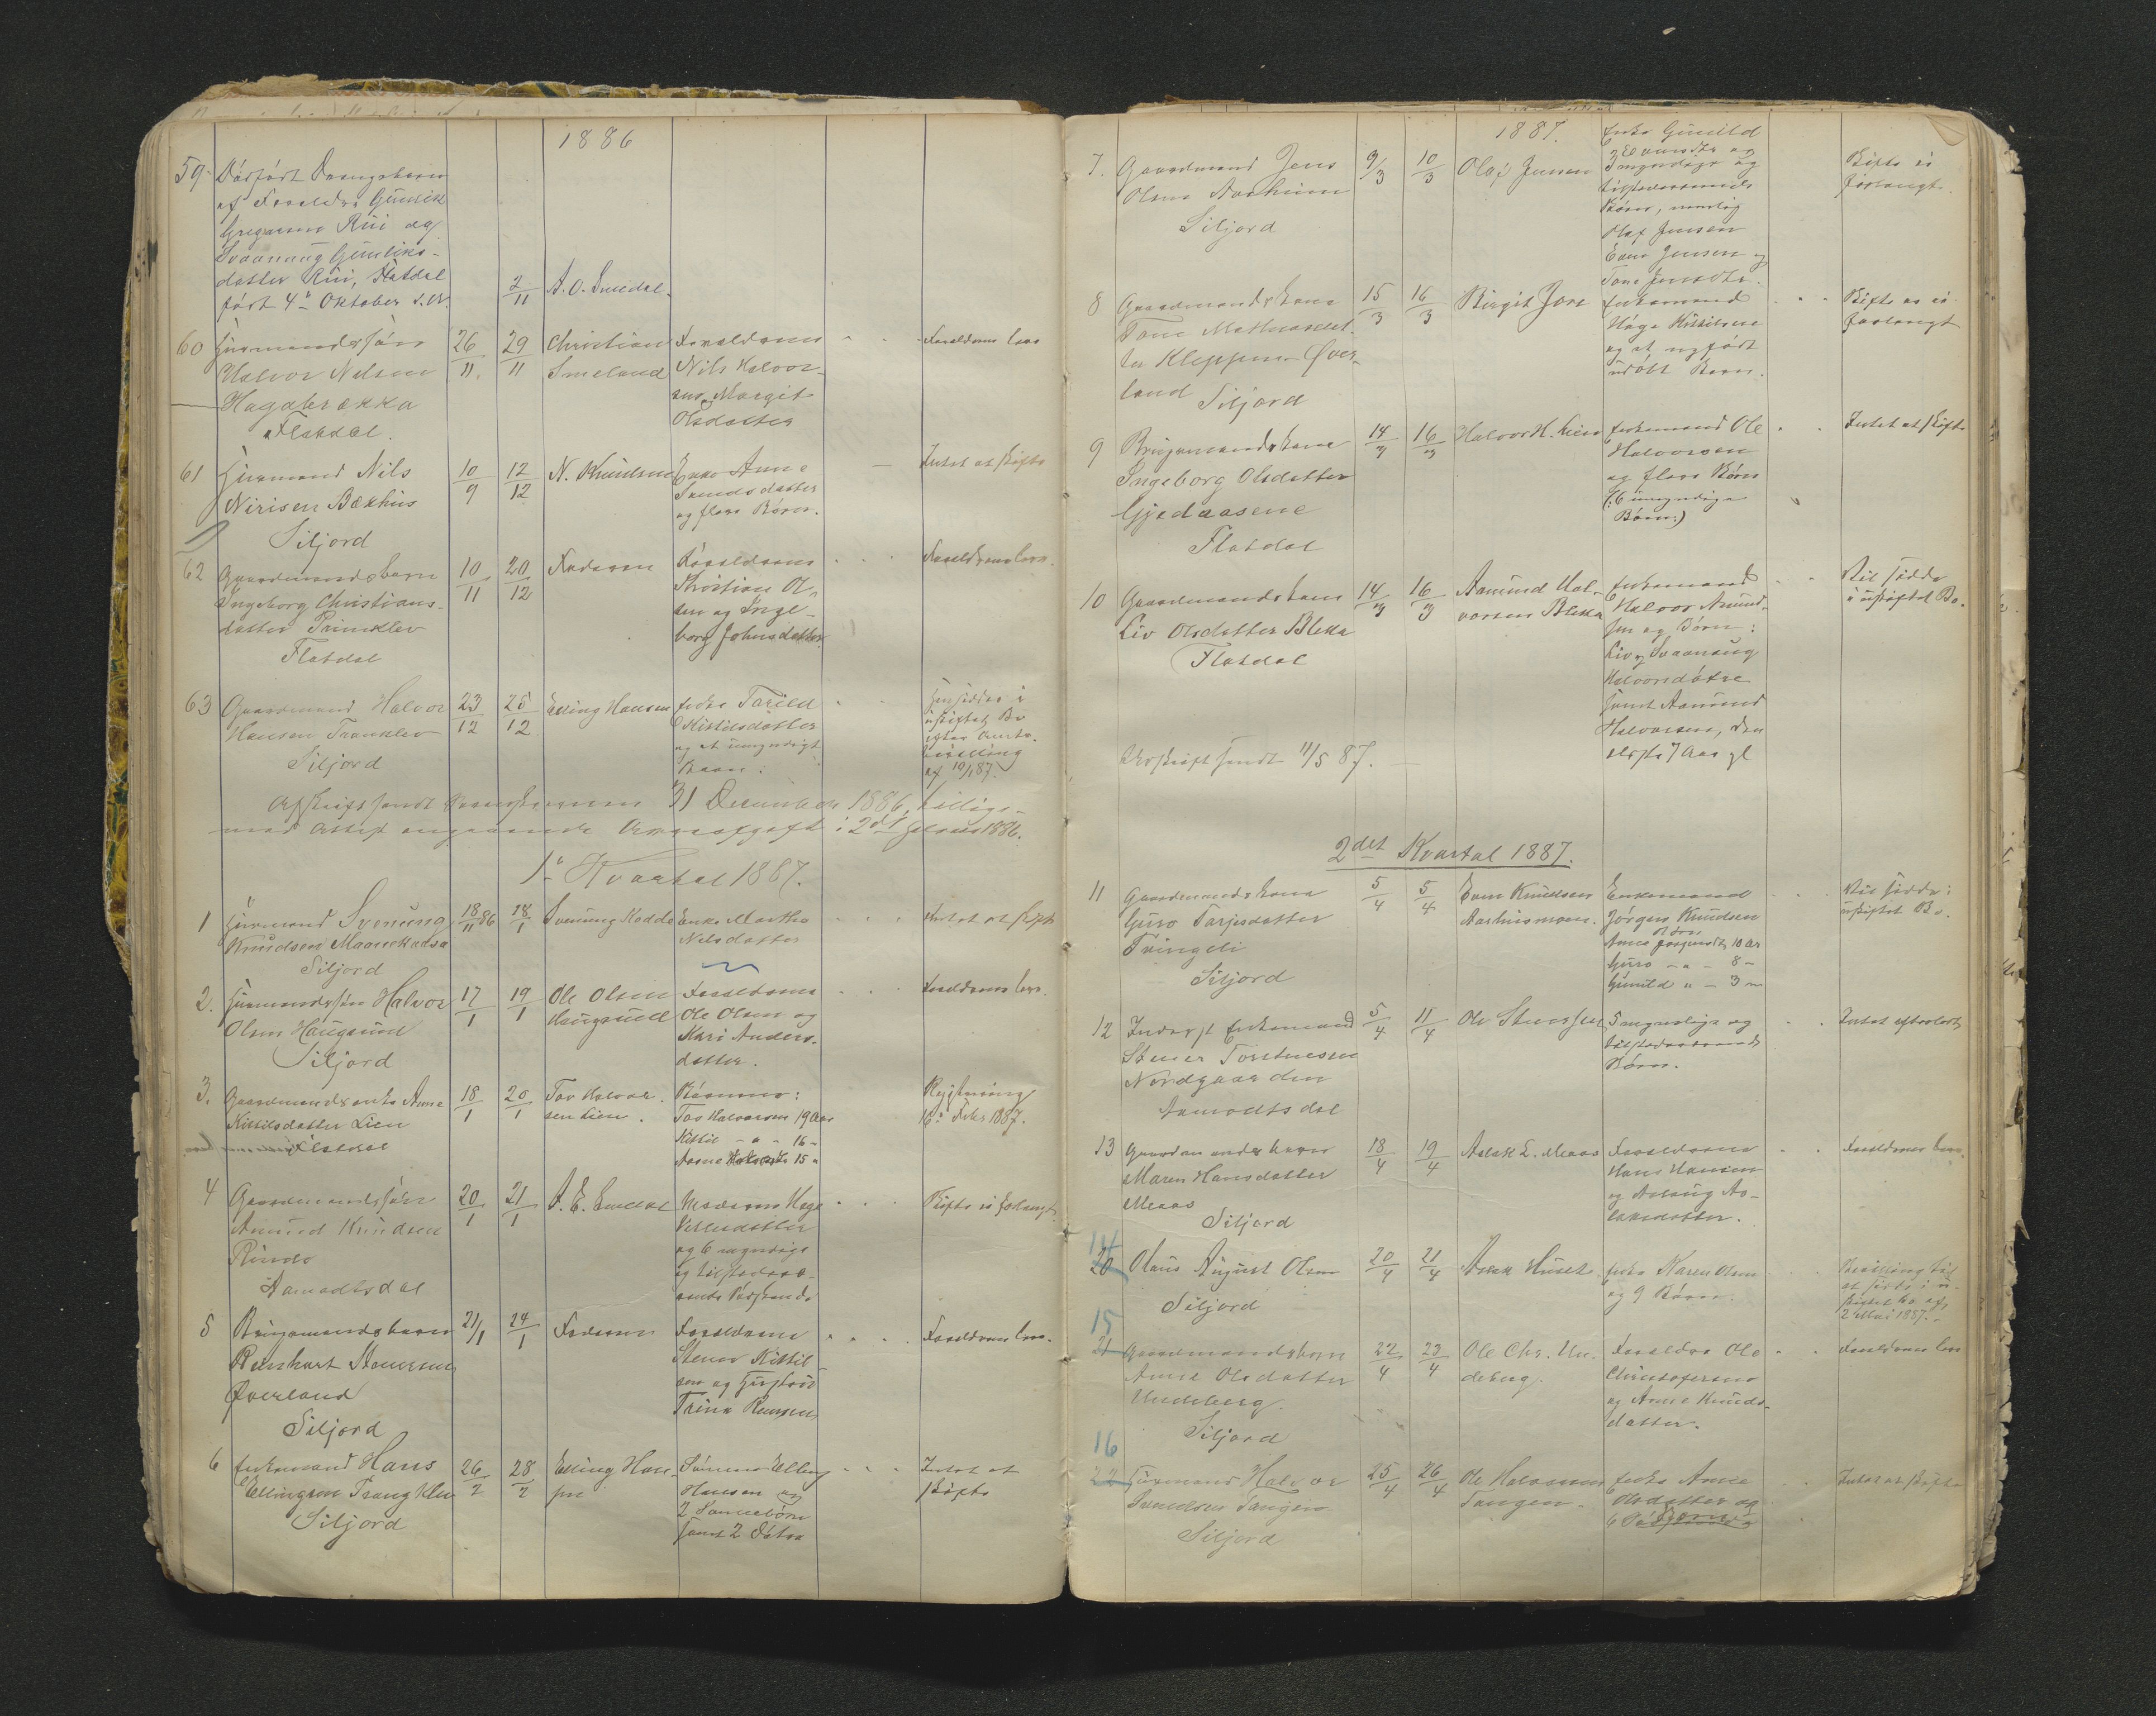 1886
59. Dødfødt Drængebarn
af Forældre Gunnik
Gregarsen Rui og
Svanaug Gunliks-
datter Rui, Flatdal
født 4de Oktober d.A.
2/11
A. O. Smedal.
60 Husmandssøn
Halvor Nilsen
Hagabrækka
Flatdal.
26/11.
29/11
Christian
Smeland
Forældrene
Nils Halvor-
sen, Margit
Olsdatter
Forældrene leve
61 Husmand Nils
Nirisen Bækhus
Siljord
10/9
12/12
N. Knudsen
Enke Anne
Svends datter
og flere Børn.
Intet at skifte
62 Gaardmandsbarn
Ingeborg Christians-
datter Prinklev
Flatdal
10/11
20/12
Faderen
Forældrene
Kristian Ol-
sen og Inge-
borg Johnsdatter
Forældrene leve.
63 Gaardmand Halvor
Hansen Tranklev
Siljord
23/12
25/12
Elling Hansen
Enke Torild
Kittilsdatter
og et umyndigt
Barn.
Hensidder i
uskiftet Bo
efter Amts-
bevilling
af 19/1 87.
Afskrift sendt 31 December 1886, tillige-
med Attest angaaende Arveafgift i 2det Halvaar 1886.
1ste Kvartal 1887.
1 Husmand Svenung
Knudsen Maanekadsa
Siljord
18/11 86
18/1
Svenung Kodde
Enke Martha
Nilsdatter
Intet at skifte
2. Husmandssøn Halvor
Olsen Haugsund
Siljord
17/1
19/1
Ole Olsen
Haugsund
Forældrene
Ole Olsen og
Kari Anders-
datter.
Forældrene leve.
3. Gaardmandsenke Anne
Kittilsdatter Lien
Flatdal
18/1
20/1
Tov Halvor-
sen Lien.
Børnene:
Tov Halvorsen 19 Aar
Kittil - " - 16 -
Anne Halvorsdt 15 "
Registrering
16de Febr 1887.
4 Gaardmandssøn
Amund Knudsen
Rinde
Aamodtsdal
20/1
21/1
A. E. Smedal
Moderen Hage
og 6 myndige
og tilstedevæ-
rende Sødskende
Skifte ei forlangt
5 Brugsmandsbarn
Reinhart Stenersen
Øverland
Siljord
21/1
24/1
Faderen
Forældrene
Stener Kittil-
sen og Hustru
Trine
Forældrene leve.
6 Enkemand Hans
Ellingsen Trangklev
Siljord
26/2
28/2
Elling Han-
sen
Sønnen Elling
Hansen og
2 Sønnebørn
samt 2 Døtre
Intet at
skifte
1887.
7. Gaardmand Jens
Olsen Aarhun
Siljord
9/3
10/3
Olaf Jensen
Enke Gunild
3 myndige og
tilstedeværende
Børn, nemlig
Olaf Jensen
Even Jensen og
Tone Jensdtr.
Skifte ei
forlangt.
8 Gaardmandskone
Tone Mathiasdat-
ter Kleppen Øver-
land Siljord
15/3
16/3
Birgit Jore
Enkemand
Hage Kittilsen
og et nyfødt
udøbt Barn.
Skifte er ei
forlangt
9 Brugsmandskone
Ingeborg Olsdatter
Gjedaasene
Flatdal
14/3
16/3
Halvor H. Lien
Enkemand Ole
Halvorsen
og flere Børn
(: 6 umyndige
Børn:)
Intet at skifte
10 Gaardmandskone
Liv Olsdatter Bleka
Flatdal
14/3
16/3
Aamund Hal-
vorsen Bleka
Enkemand
Halvor Amund-
sen og Børn:
Liv og Svanaug
Halvorsdøtre
samt Aamund
Halvorsen, den
ældste 7 Aar gl
Vil sidde
i uskiftet Bo.
Udskrift sendt 11/5 87.
2det Kvartal 1887.
11 Gaardmandskone
Guro Tarjesdatter
Tvingeli
Siljord
5/4
5/4
Even Knudsen
Aarhusmoen.
Enkemand
Jørgen Knudsen
Børn
Anne Jørgensdt. 10 Aar
Guro - " - 8 -
Gunild " - 3 -
Vil sidde i
uskiftet Bo.
12 Inderst Enkemand
Stener Torstensen
Nordgaarden
Aamodtsdal
5/4
11/4
Ole Stenersen
5 myndige og
tilstedeværende
Børn.
Intet efterladt
13 Gaardmandsbarn
Maren Hansdatter
Meaas
Siljord
18/4
19/4
Aslak L. Meaas
Forældrene
Hans Hansen
og Aslaug As-
laksdatter.
Forældrene leve.
14
20 Olaus August Olsen
Siljord
20/4
21/4
Aslak Huset
Enke Karen Olsen
og 9 Børn.
Bevilling til
at sidde i u-
skiftet Bo af
2 Mai 1887.
15
21 Gaardmandsbarn
Anne Olsdatter
Undeberg.
Siljord
22/4
23/4
Ole Chr. Un-
deberg.
Forældre Ole
Christofersen
og Anne Knuds-
datter.
Forældrene leve
16
22 Husmand Halvor
Svendsen Tangen
Siljord
25/4
26/4
Ole Halvorsen
Tangen.
Enke Anne
Olsdatter og
6 Børn
Intet at skifte